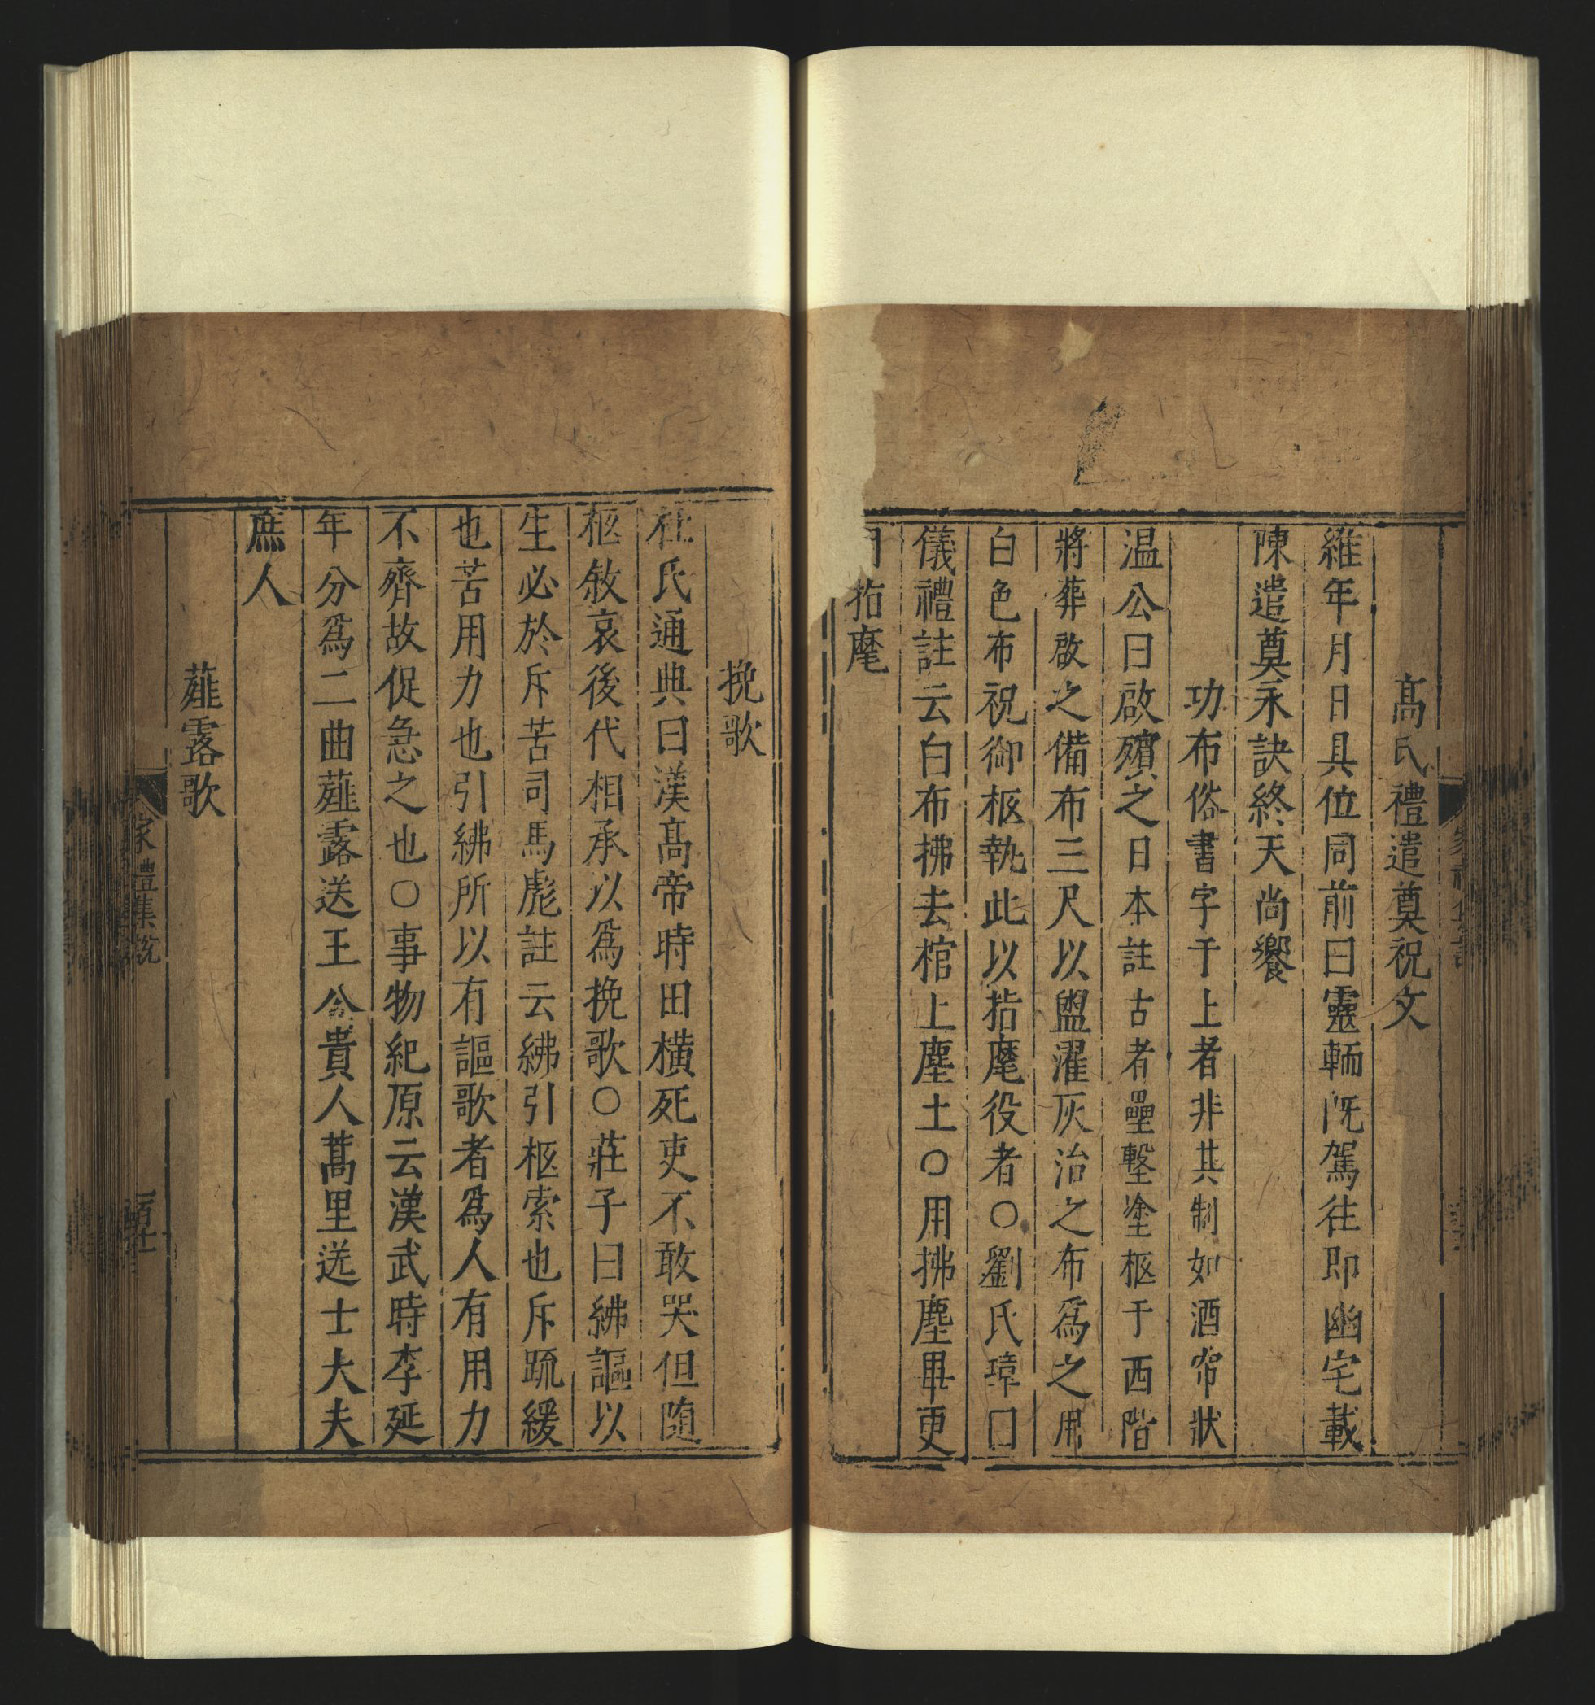 髙氏禮遣奠祝文
維年月日具位同前曰靈輀旣駕徃即幽宅載
陳遣奠永訣終天尚饗
功布俗書字于上者非其制如酒帘狀
温公曰啟殯之日本註古者壘墼塗柩于西階
將葬啟之備布三尺以盥濯灰治之布爲之用
白色布祝御柩執此以指麾役者○劉氏璋曰
儀禮註云白布拂去棺上塵土○用拂塵畢更
指麾
挽歌
杜氏通典曰漢髙帝時田横死吏不敢哭但随
柩敘哀後代相承以爲挽歌○莊子曰紼謳以
生必於斥苦司馬彪註云紼引柩索也斥䟽緩
也苦用力也引紼所以有謳歌者爲人有用力
不齊故促急之也○事物紀原云漢武時李延
年分爲二曲薤露送王公貴人蒿里送士大夫
庶人
薤露歌
家禮集説